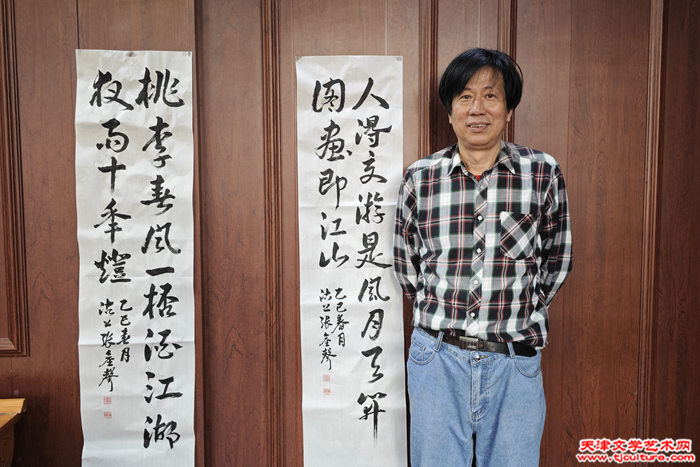 桃李春风一杯酒江湖
夜雨十年燈
乙巳春月
沽上张聲
人得交游是风月天开
图画即江山
乙巳春月
沽上张聲
天津文学艺术网
www.tjculture.com